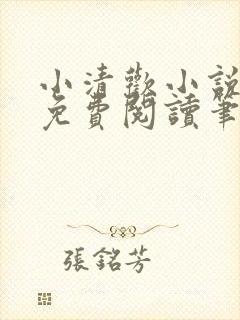 小清歡小說
免費閱讀筆
張銘芳